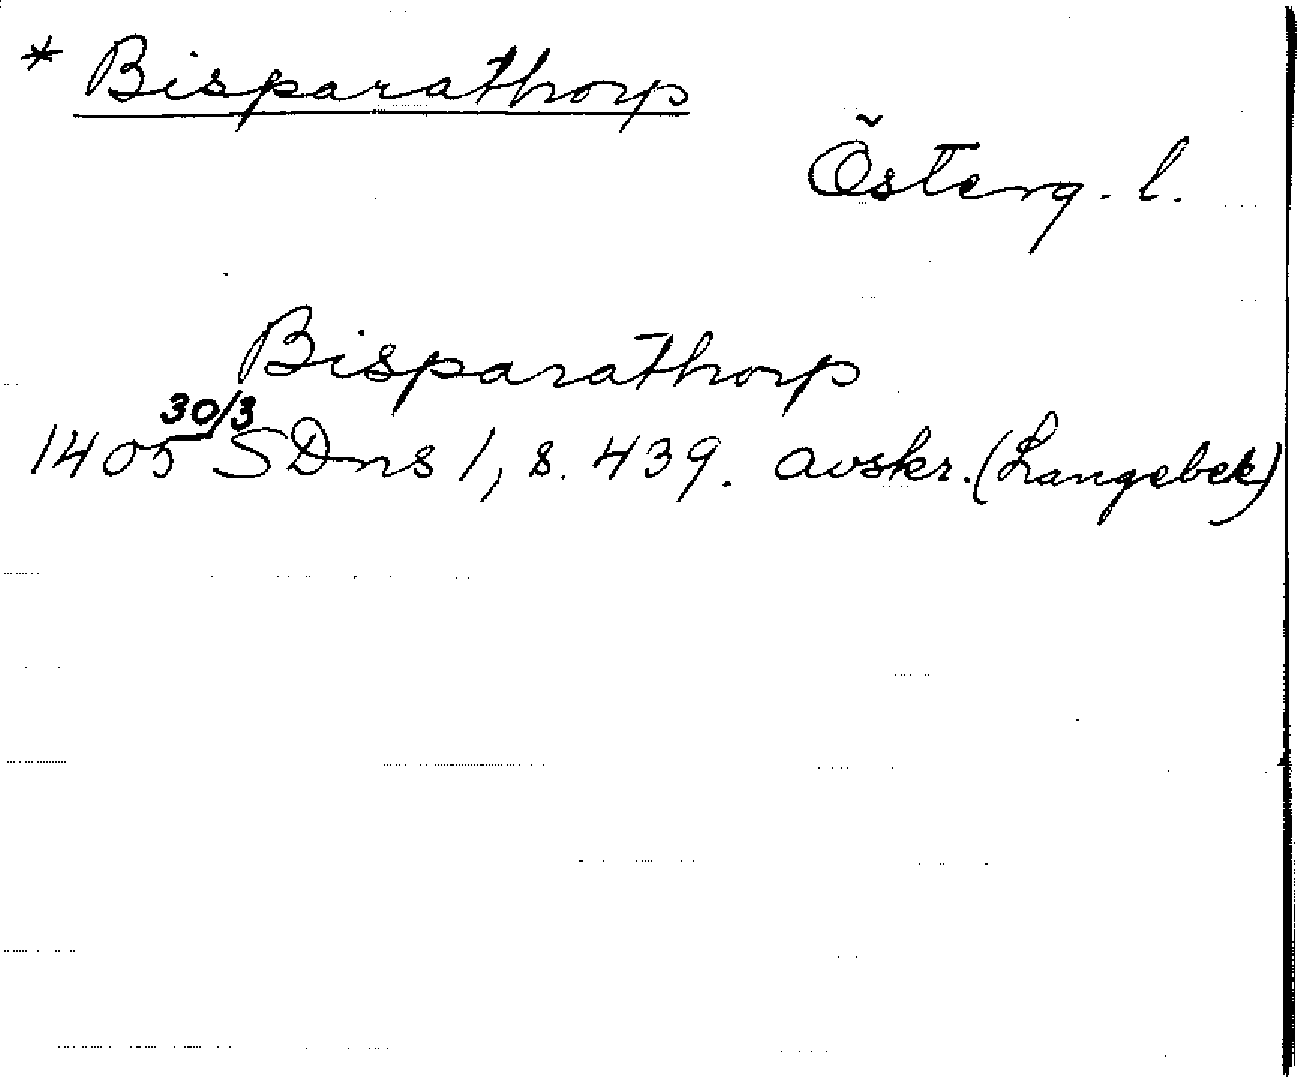 * Bisparathorp
Österg. l.
Bisparathorp
30/3
1405 SDns 1, s. 439. avskr. (Langebek)